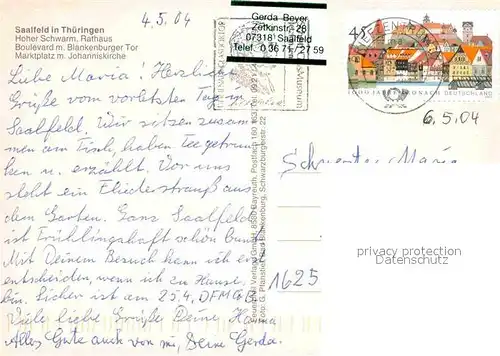 4.5.04
Saalfeld in Thüringen
Hoher Schwarm, Rathaus
Boulevard m. Blankenburger Tor
Marktplatz m. Johanniskirche
Liebe Maria! Herzliche
Grüße vom vorletzten Tag in
Saalfeld. Wir sitzen zusam
men am Tisch, haben Tee getrun
ken u. erzählt. Vor uns
steht ein Fliederstrauß aus
dem Garten. Ganz Saalfeld
ist frühlingshaft schön bunt
Mit Deinem Besuch kann ich erst
entscheiden, wenn ich zu Hause
bin. Sicher ist am 25.4. DFMGB
Viele liebe Grüße Deine, Hanna
Alles Gute auch von mir, Deine Gerda.
Gerda Beyer
Zetkinstr. 28
07318 Saalfeld
Telef. 0 36 71 / 27 59
45
DEUTSCHLAND
6.5.04
Maria
1625
privacy protection
Datenschutz